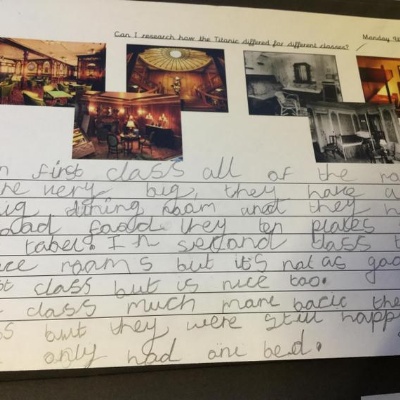 Can I research how the Titanic differed for different classes? Monday 9
n first class all of the ro
re very big, they have a
ig dining room and they h
food they ten plates
tabels In second class t
ice rooms but it's not as goo
st class but is nice too.
class much more basic the
s but they were still happ
only had one bed.